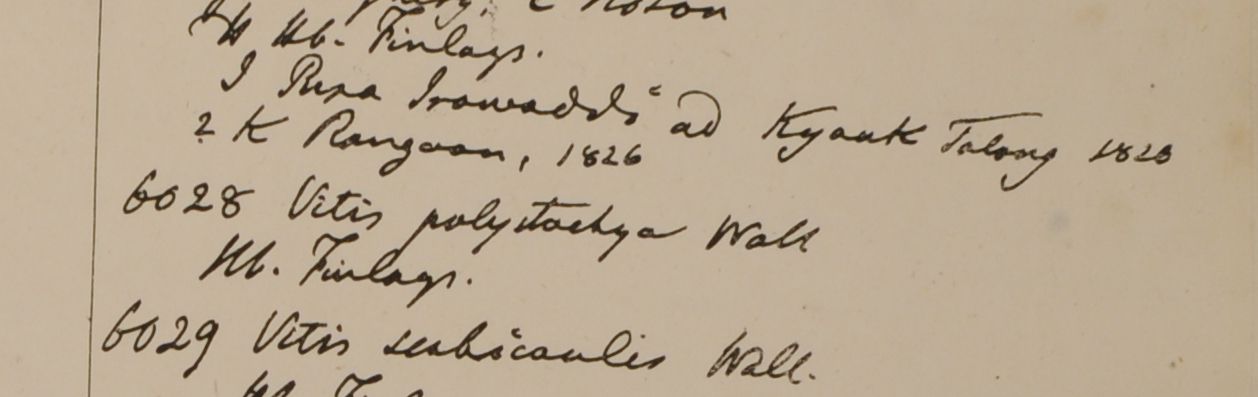 H Hb. Finlays.
I Ripa Irawaddi ad Kyauk Talong 1826
? K Rangoon, 1826
6028 Vitis polystachya Wall
Hb. Finlays.
6029 Vitis scabicaulis Wall.